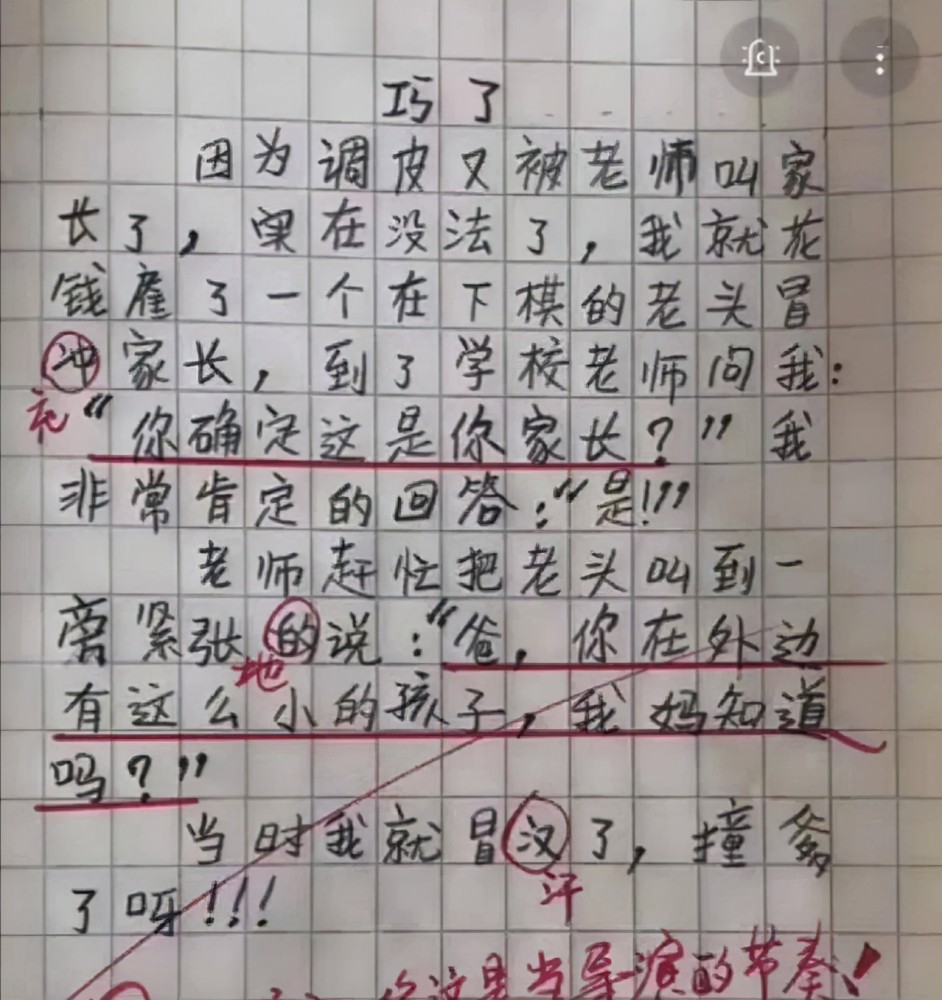 巧了
因为调皮又被老师叫家
长了，实在没法了，我就花
钱雇了一个在下棋的老头冒
冲家长，到了学校老师问我：
充
“你确定这是你家长？”我
非常肯定的回答：“是!”
老师赶忙把老头叫到一
旁紧张的说：“爸，你在外边
地
有这么小的孩子，我妈知道
吗？”
当时我就冒汉了，撞爹
汗
了呀!!!
你这是当导演的节奏!